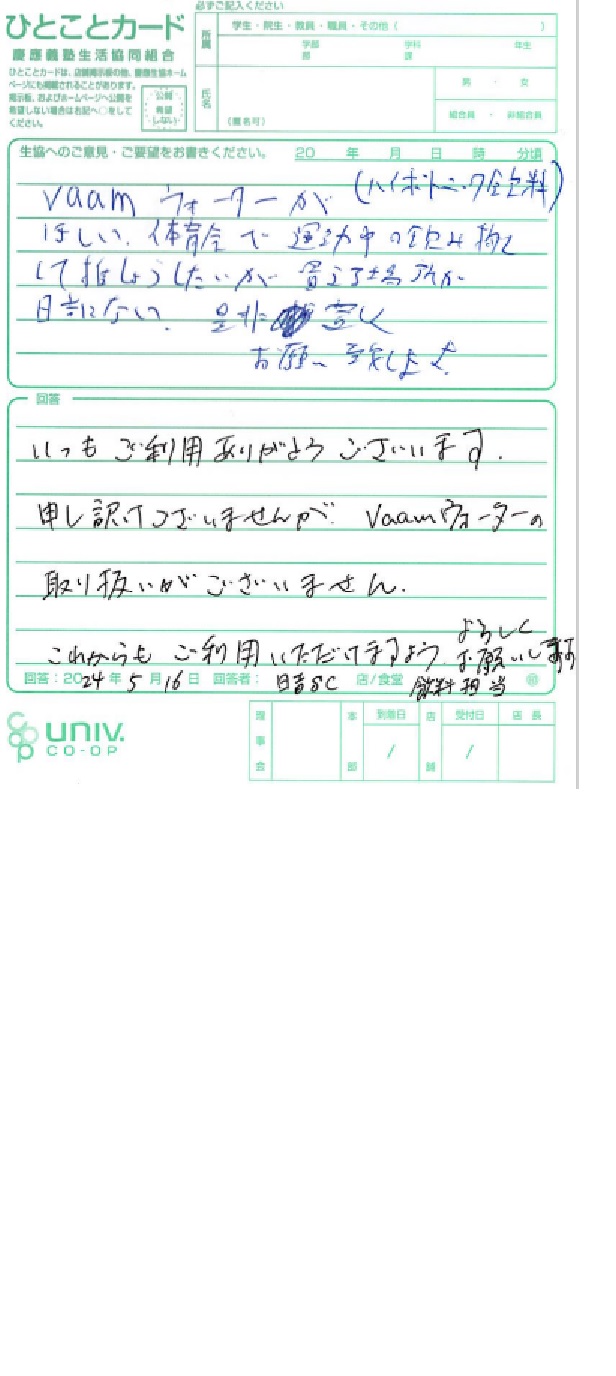 必ずご記入ください
ひとことカード
慶應義塾生活協同組合
ひとことカードは、店舗掲示板の他、慶應生協ホーム
ページにも掲載されることがあります。
掲示板、およびホームページへ公開を
希望しない場合は右記へ○をして
ください。
公開
希望
しない
所属
学生・院生・教員・職員・その他（ ）
学部 学科 年生
部 課
氏名
（匿名可）
男 ・ 女
組合員 ・ 非組合員
生協へのご意見・ご要望をお書きください。 20 年 月 日 時 分頃
vaam ウォーターが (ハイポトニック飲料)
ほしい。体育会で運動中の飲み物と
して推しょうしたいが買える場所が
日吉にない。是非 宜しく
お願い致します。
回答
いつもご利用ありがとうございます。
申し訳けございませんが、Vaamウォーターの
取り扱いがございません。
これからもご利用いただけますよう よろしく
お願いします
回答：2024年5月16日 回答者：日吉SC 店/食堂 飲料担当 ㊞
UNIV.
CO-OP
理事会
本部
到着日
/
店舗
受付日
/
店長